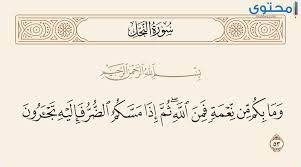 محتوى
سُورَةُ النَّحْلِ
بِسْمِ اللَّهِ الرَّحْمَٰنِ الرَّحِيمِ
وَمَا بِكُم مِّن نِّعْمَةٍ فَمِنَ اللَّهِ ۖ ثُمَّ إِذَا مَسَّكُمُ الضُّرُّ فَإِلَيْهِ تَجْـَٔرُونَ
٥٣